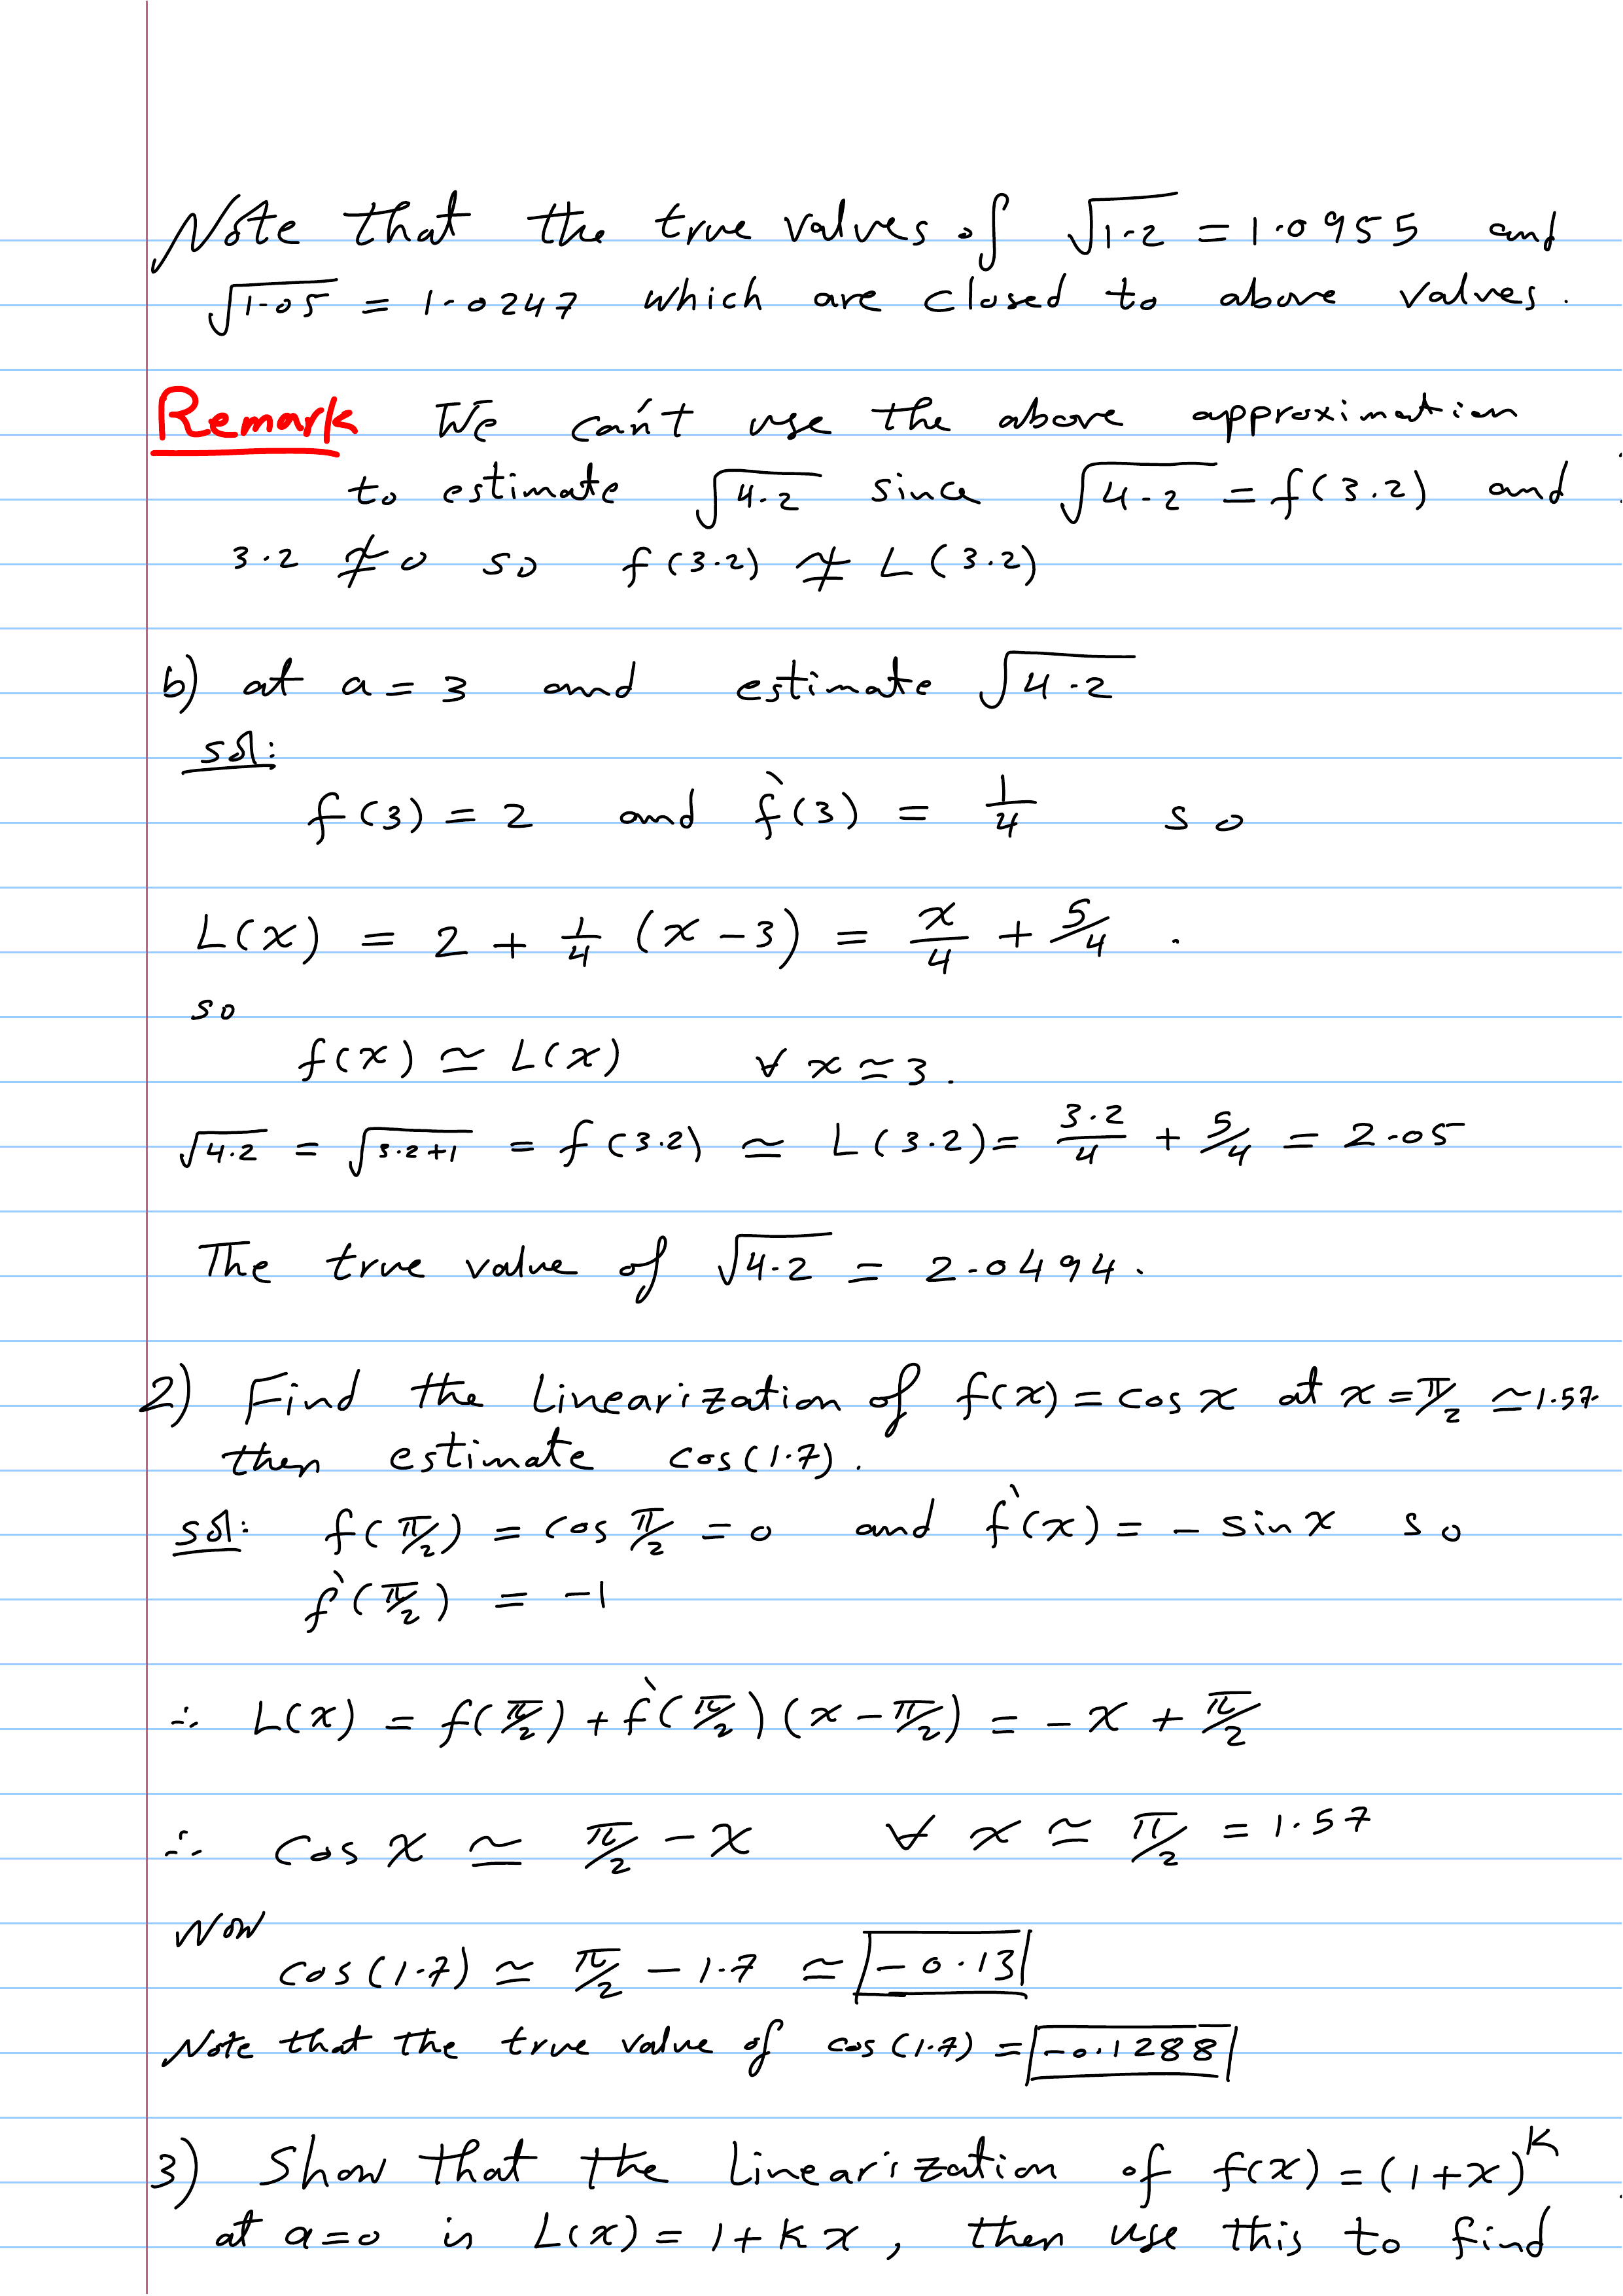 Note that the true values of √1.2 = 1.0955 and
√1.05 = 1.0247 which are closed to above values.
Remark We can't use the above approximation
to estimate √4.2 since √4.2 = f(3.2) and
3.2 ≄ 0 so f(3.2) ≄ L(3.2)
b) at a = 3 and estimate √4.2
sol:
f(3) = 2 and f`(3) = 1/4 so
L(x) = 2 + 1/4 (x - 3) = x/4 + 5/4 .
so
f(x) ≃ L(x) ∀ x ≃ 3.
√4.2 = √3.2+1 = f(3.2) ≃ L(3.2) = 3.2/4 + 5/4 = 2.05
The true value of √4.2 = 2.0494.
2) Find the Linearization of f(x) = cos x at x = π/2 ≃ 1.57
then estimate cos(1.7).
sol: f(π/2) = cos π/2 = 0 and f`(x) = - sin x so
f`(π/2) = -1
∴ L(x) = f(π/2) + f`(π/2) (x - π/2) = - x + π/2
∴ Cos x ≃ π/2 - x ∀ x ≃ π/2 = 1.57
Now
cos(1.7) ≃ π/2 - 1.7 ≃ -0.13
Note that the true value of cos(1.7) = -0.1288
3) Show that the Linearization of f(x) = (1+x)^K
at a=0 is L(x) = 1+Kx, then use this to find